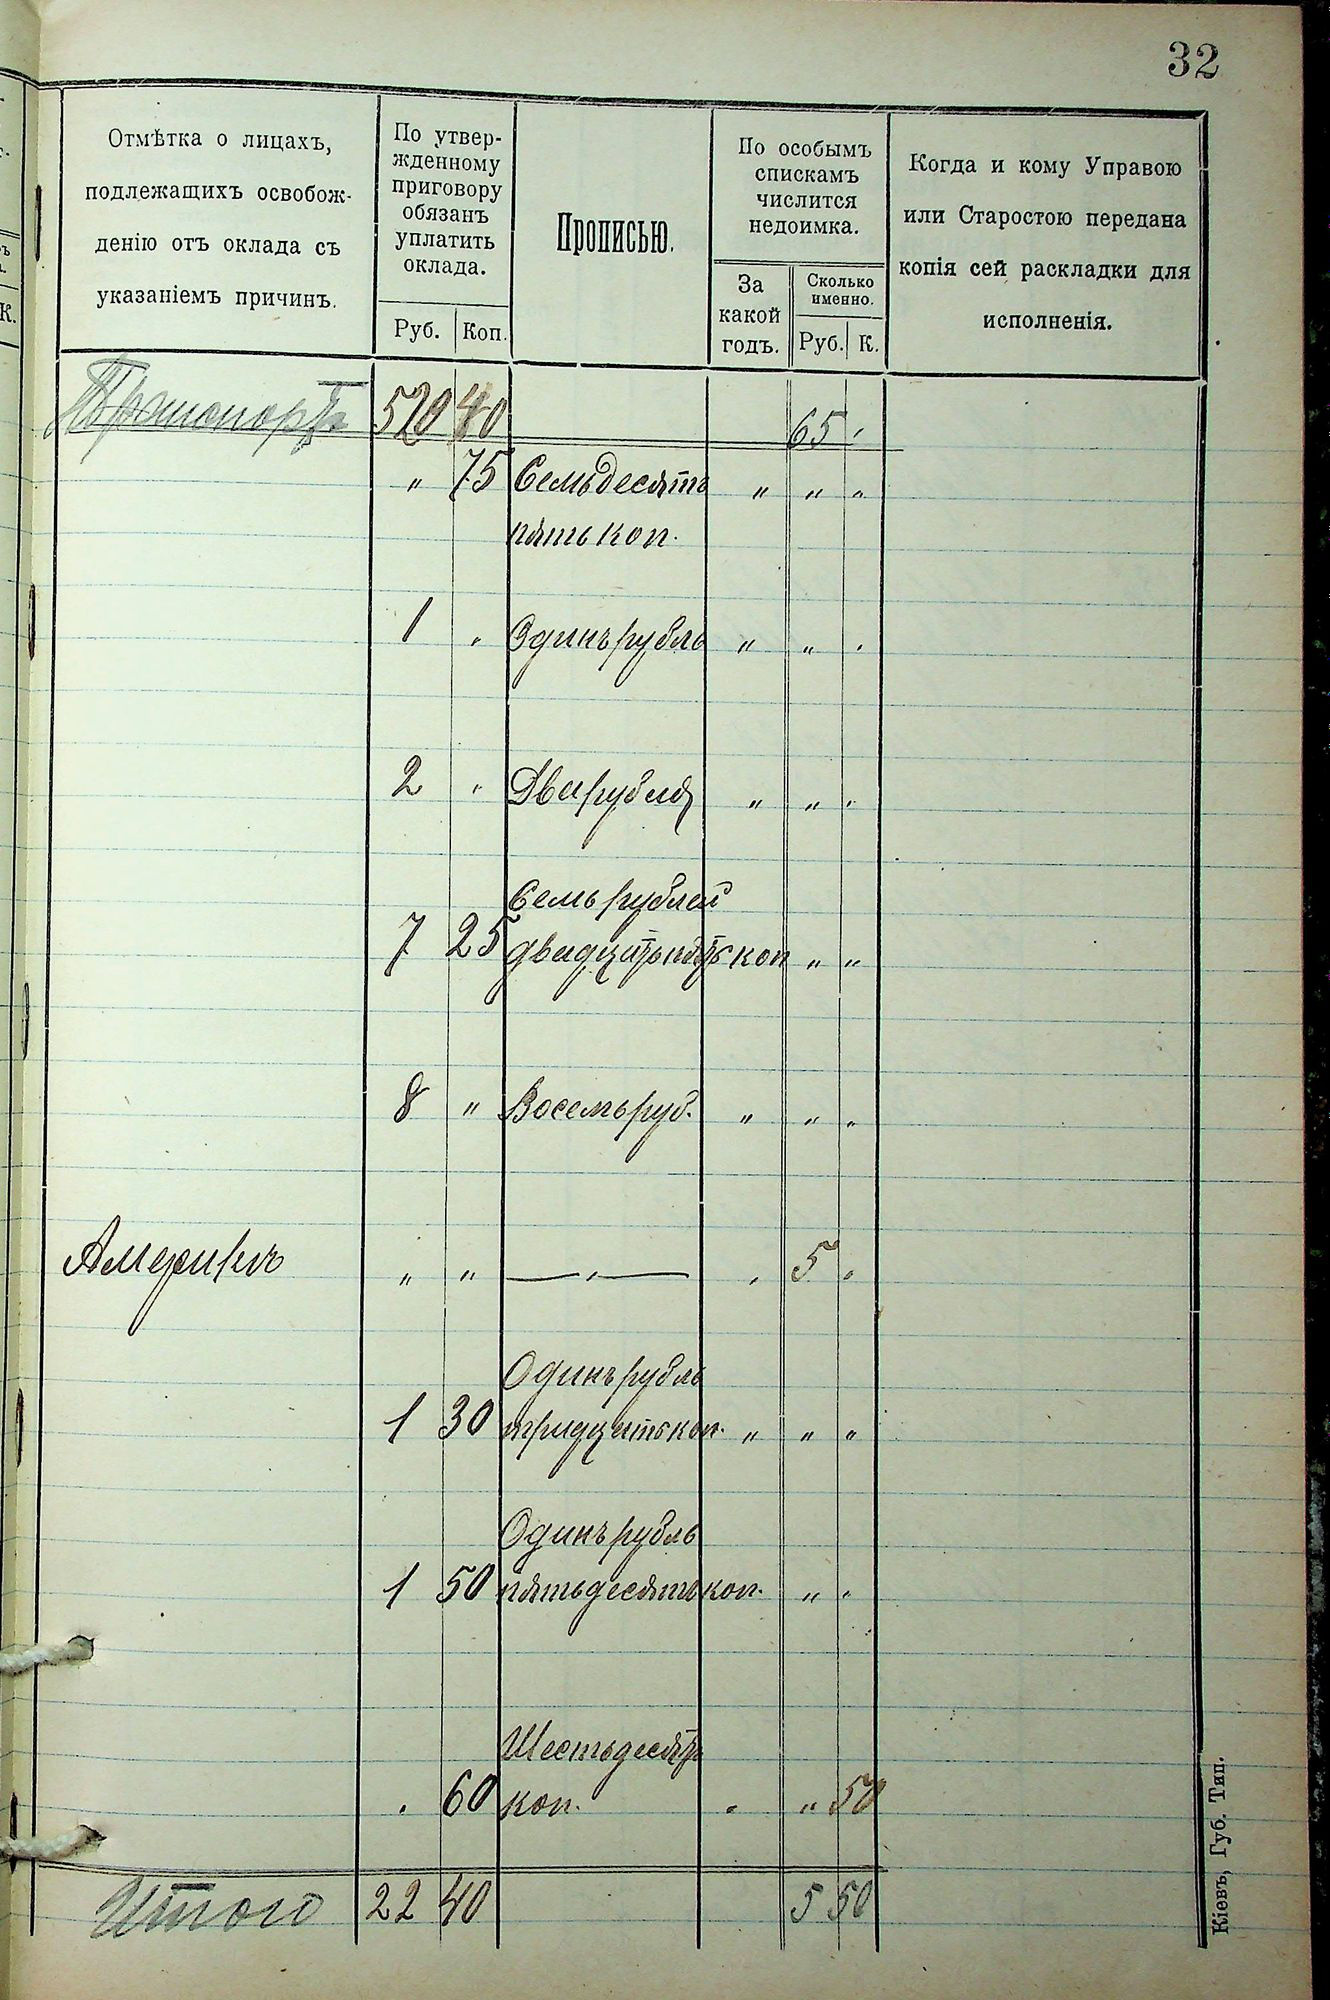 32
Отмѣтка о лицахъ,
подлежащихъ освобож-
денію отъ оклада съ
указаніемъ причинъ.
По утвер-
жденному
приговору
обязанъ
уплатить
оклада.
Руб. Коп.
Прописью.
По особымъ
спискамъ
числится
недоимка.
За
какой
годъ.
Сколько
именно.
Руб. К.
Когда и кому Управою
или Старостою передана
копія сей раскладки для
исполненія.
Транспортъ 520 40 65 "
" 75 Семьдесятъ " " "
пять коп.
1 " Одинъ рубль " " "
2 " Два рубля " " "
Семь рублей
7 25 двадцать пять коп " "
8 " Восемь руб. " " "
Америкѣ " " — " — " 5 "
Одинъ рубль
1 30 тридцать коп. " " "
Одинъ рубль
1 50 пятьдесятъ коп. " "
Шестьдесятъ
" 60 коп. " " 50
Итого 22 40 5 50
Кіевъ, Губ. Тип.
К.